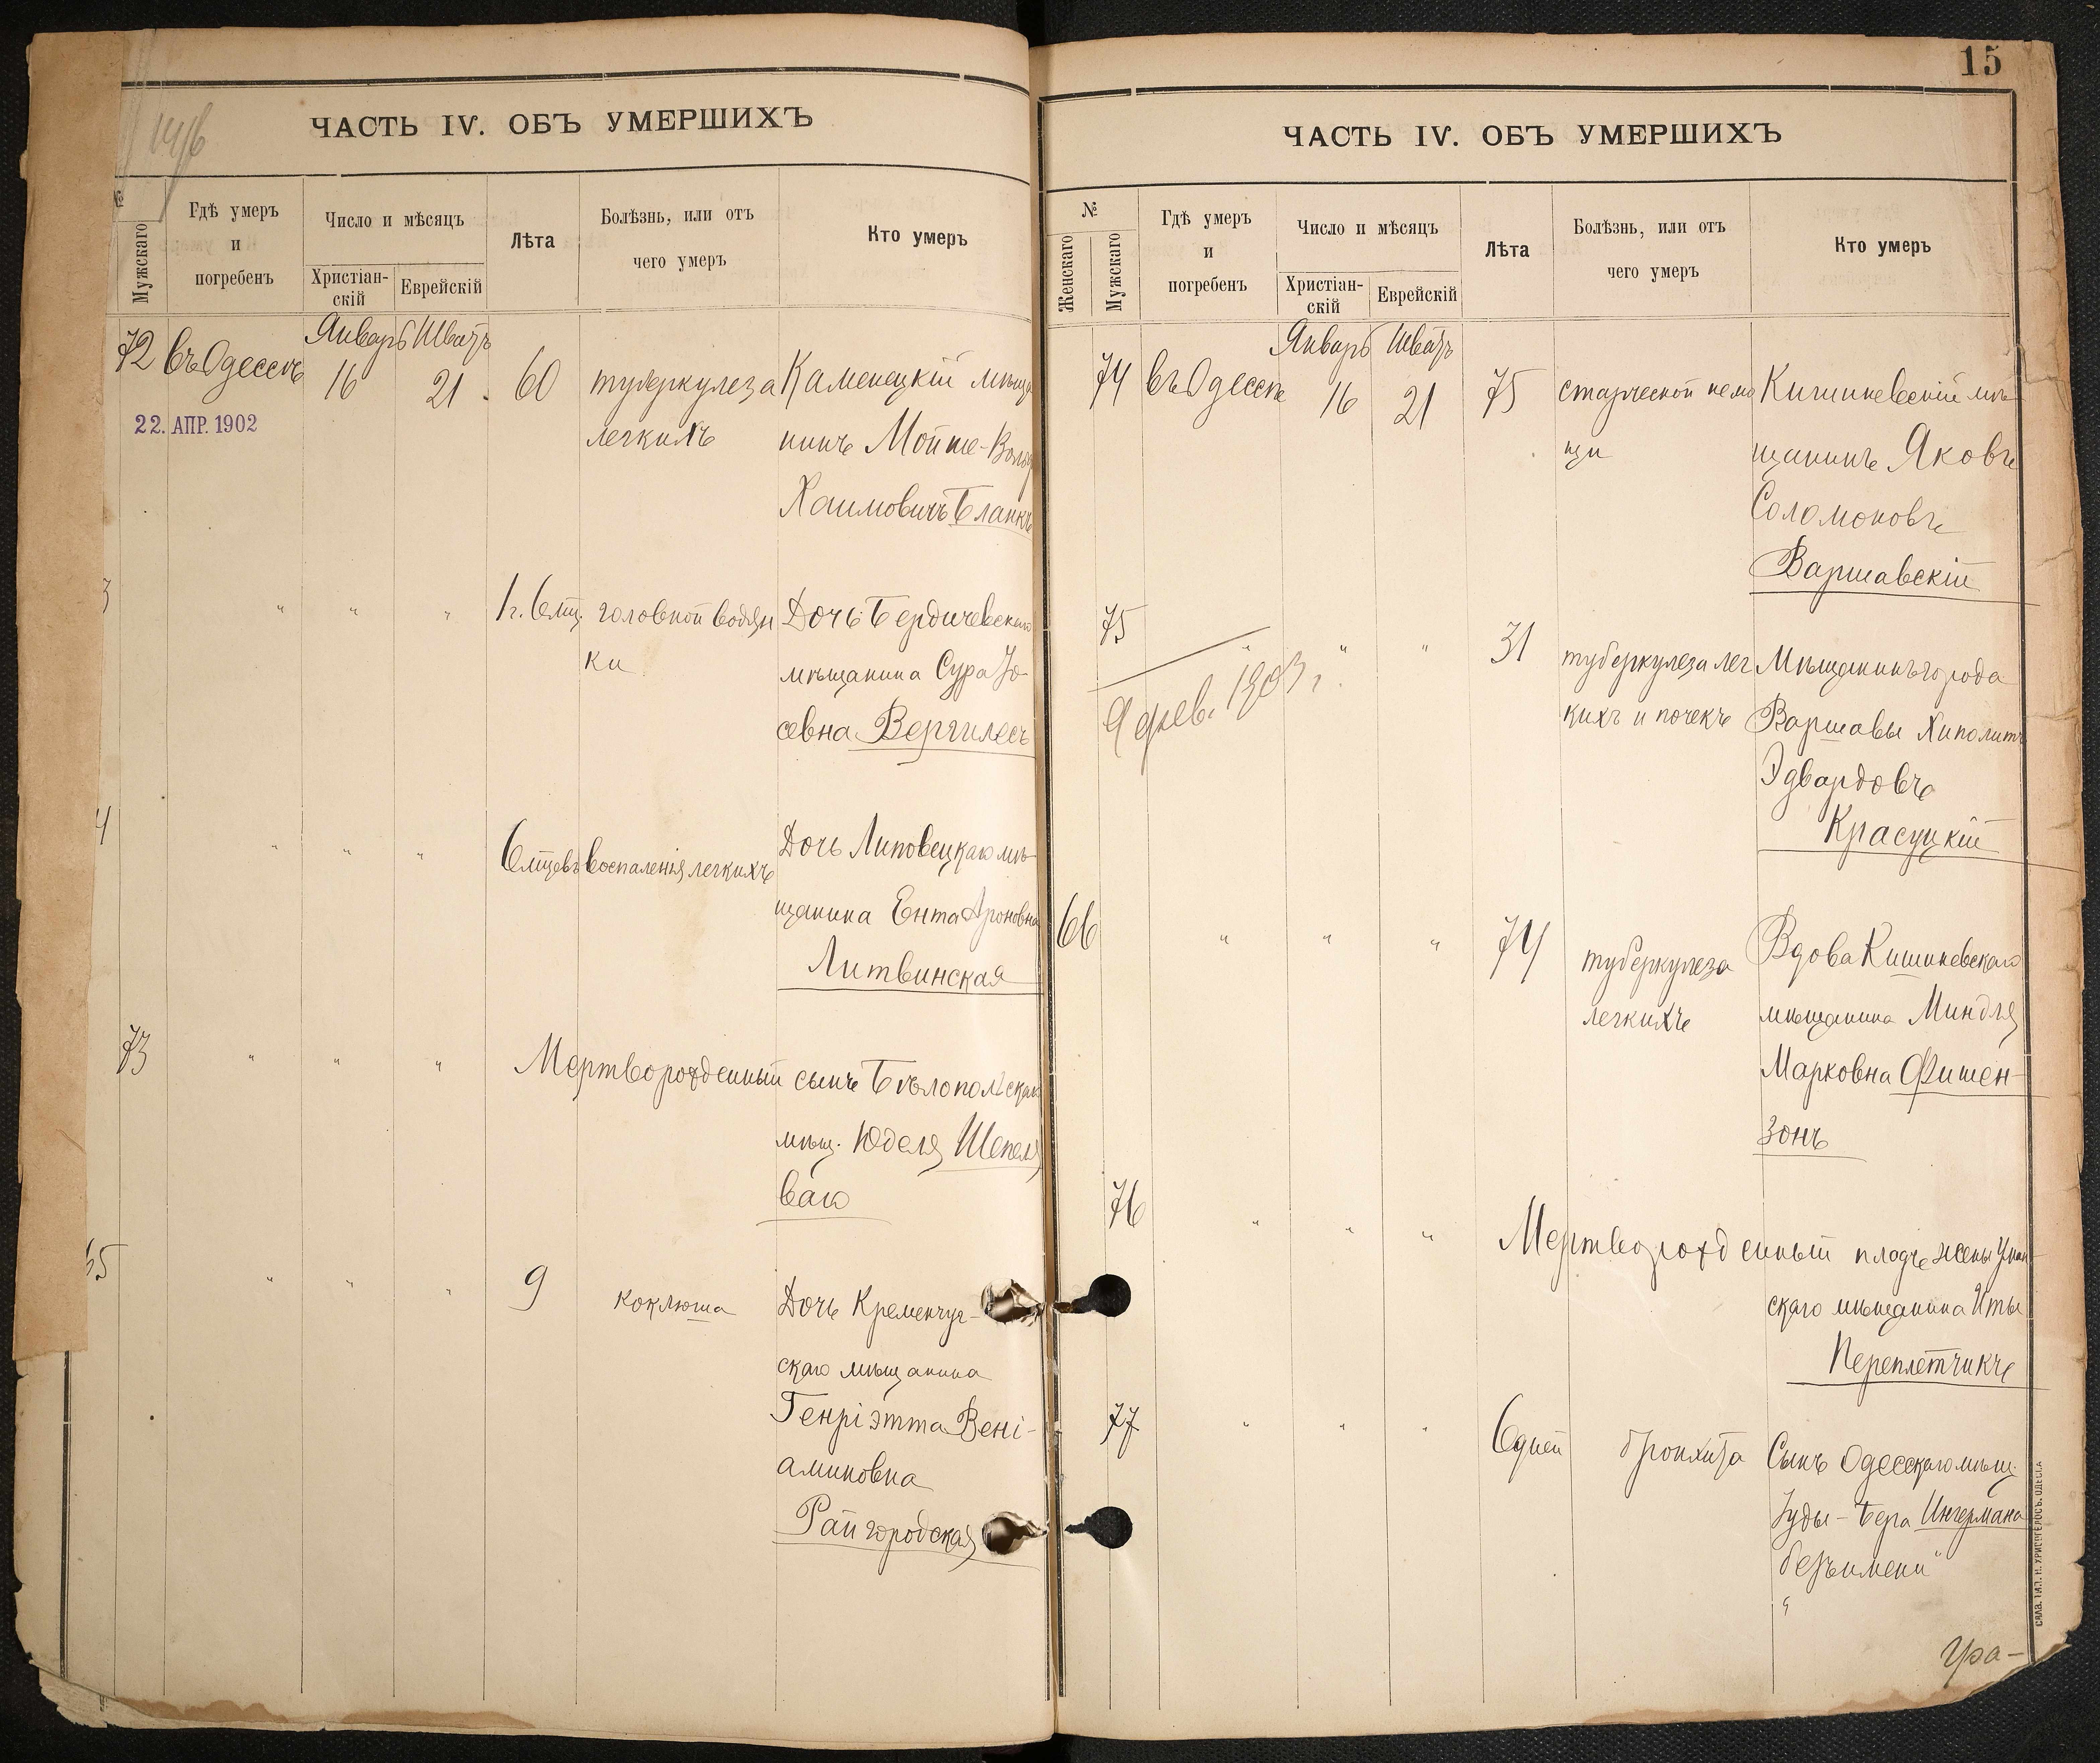 ЧАСТЬ IV. ОБЪ УМЕРШИХЪ
№
Мужскаго
Гдѣ умеръ
и
погребенъ
Число и мѣсяцъ
Христіан-
скій
Еврейскій
Лѣта
Болѣзнь, или отъ
чего умеръ
Кто умеръ
Январь Шватъ
72 въ Одессѣ 16 21 60 туберкулеза Каменецкій мѣща
22. АПР. 1902
легкихъ нинъ Мойше-
Хаимовичъ Бланкъ
3 " " " 1 г. 6 мц. головной водян Дочь Бердичевскаго
ки мѣщанина Сура Іо-
севна Вергилесъ
4 " " " 6 мцевъ воспаленія легкихъ Дочь Липовецкаго мѣ-
щанина Ента Ароновна
Литвинская
73 " " " Мертворожденный сынъ Бѣлопольскаго
мѣщ. Юделя Шепеле
ваго
65 " " " 9 коклюша Дочь Кременчуг-
скаго мѣщанина
Генріэтта Вені-
аминовна
Райгородская
15
ЧАСТЬ IV. ОБЪ УМЕРШИХЪ
№
Женскаго
Мужскаго
Гдѣ умеръ
и
погребенъ
Число и мѣсяцъ
Христіан-
скій
Еврейскій
Лѣта
Болѣзнь, или отъ
чего умеръ
Кто умеръ
Январь Шватъ
74 въ Одессѣ 16 21 75 старческой немо Кишиневскій мѣ-
щи щанинъ Яковъ
Соломоновъ
Варшавскій
75 " " " 31 туберкулеза лег Мѣщанинъ города
9 фев. 1903 г.
кихъ и почекъ Варшавы Хиполитъ
Эдвардовъ
Красуцкій
66 " " " 74 туберкулеза Вдова Кишиневскаго
легкихъ мѣщанина Миндля
Марковна Фишен-
зонъ
76 " " " Мертворожденный плодъ жены Уман-
скаго мѣщанина Иты
Переплетчикъ
77 " " " 6 дней бронхита Сынъ Одесскаго мѣщ.
Іуды-Бера Ингермана
"безъ имени"
Ура-
СКЛА. ТИП. Н. ХРИСОГЕЛОСЪ. ОДЕССА